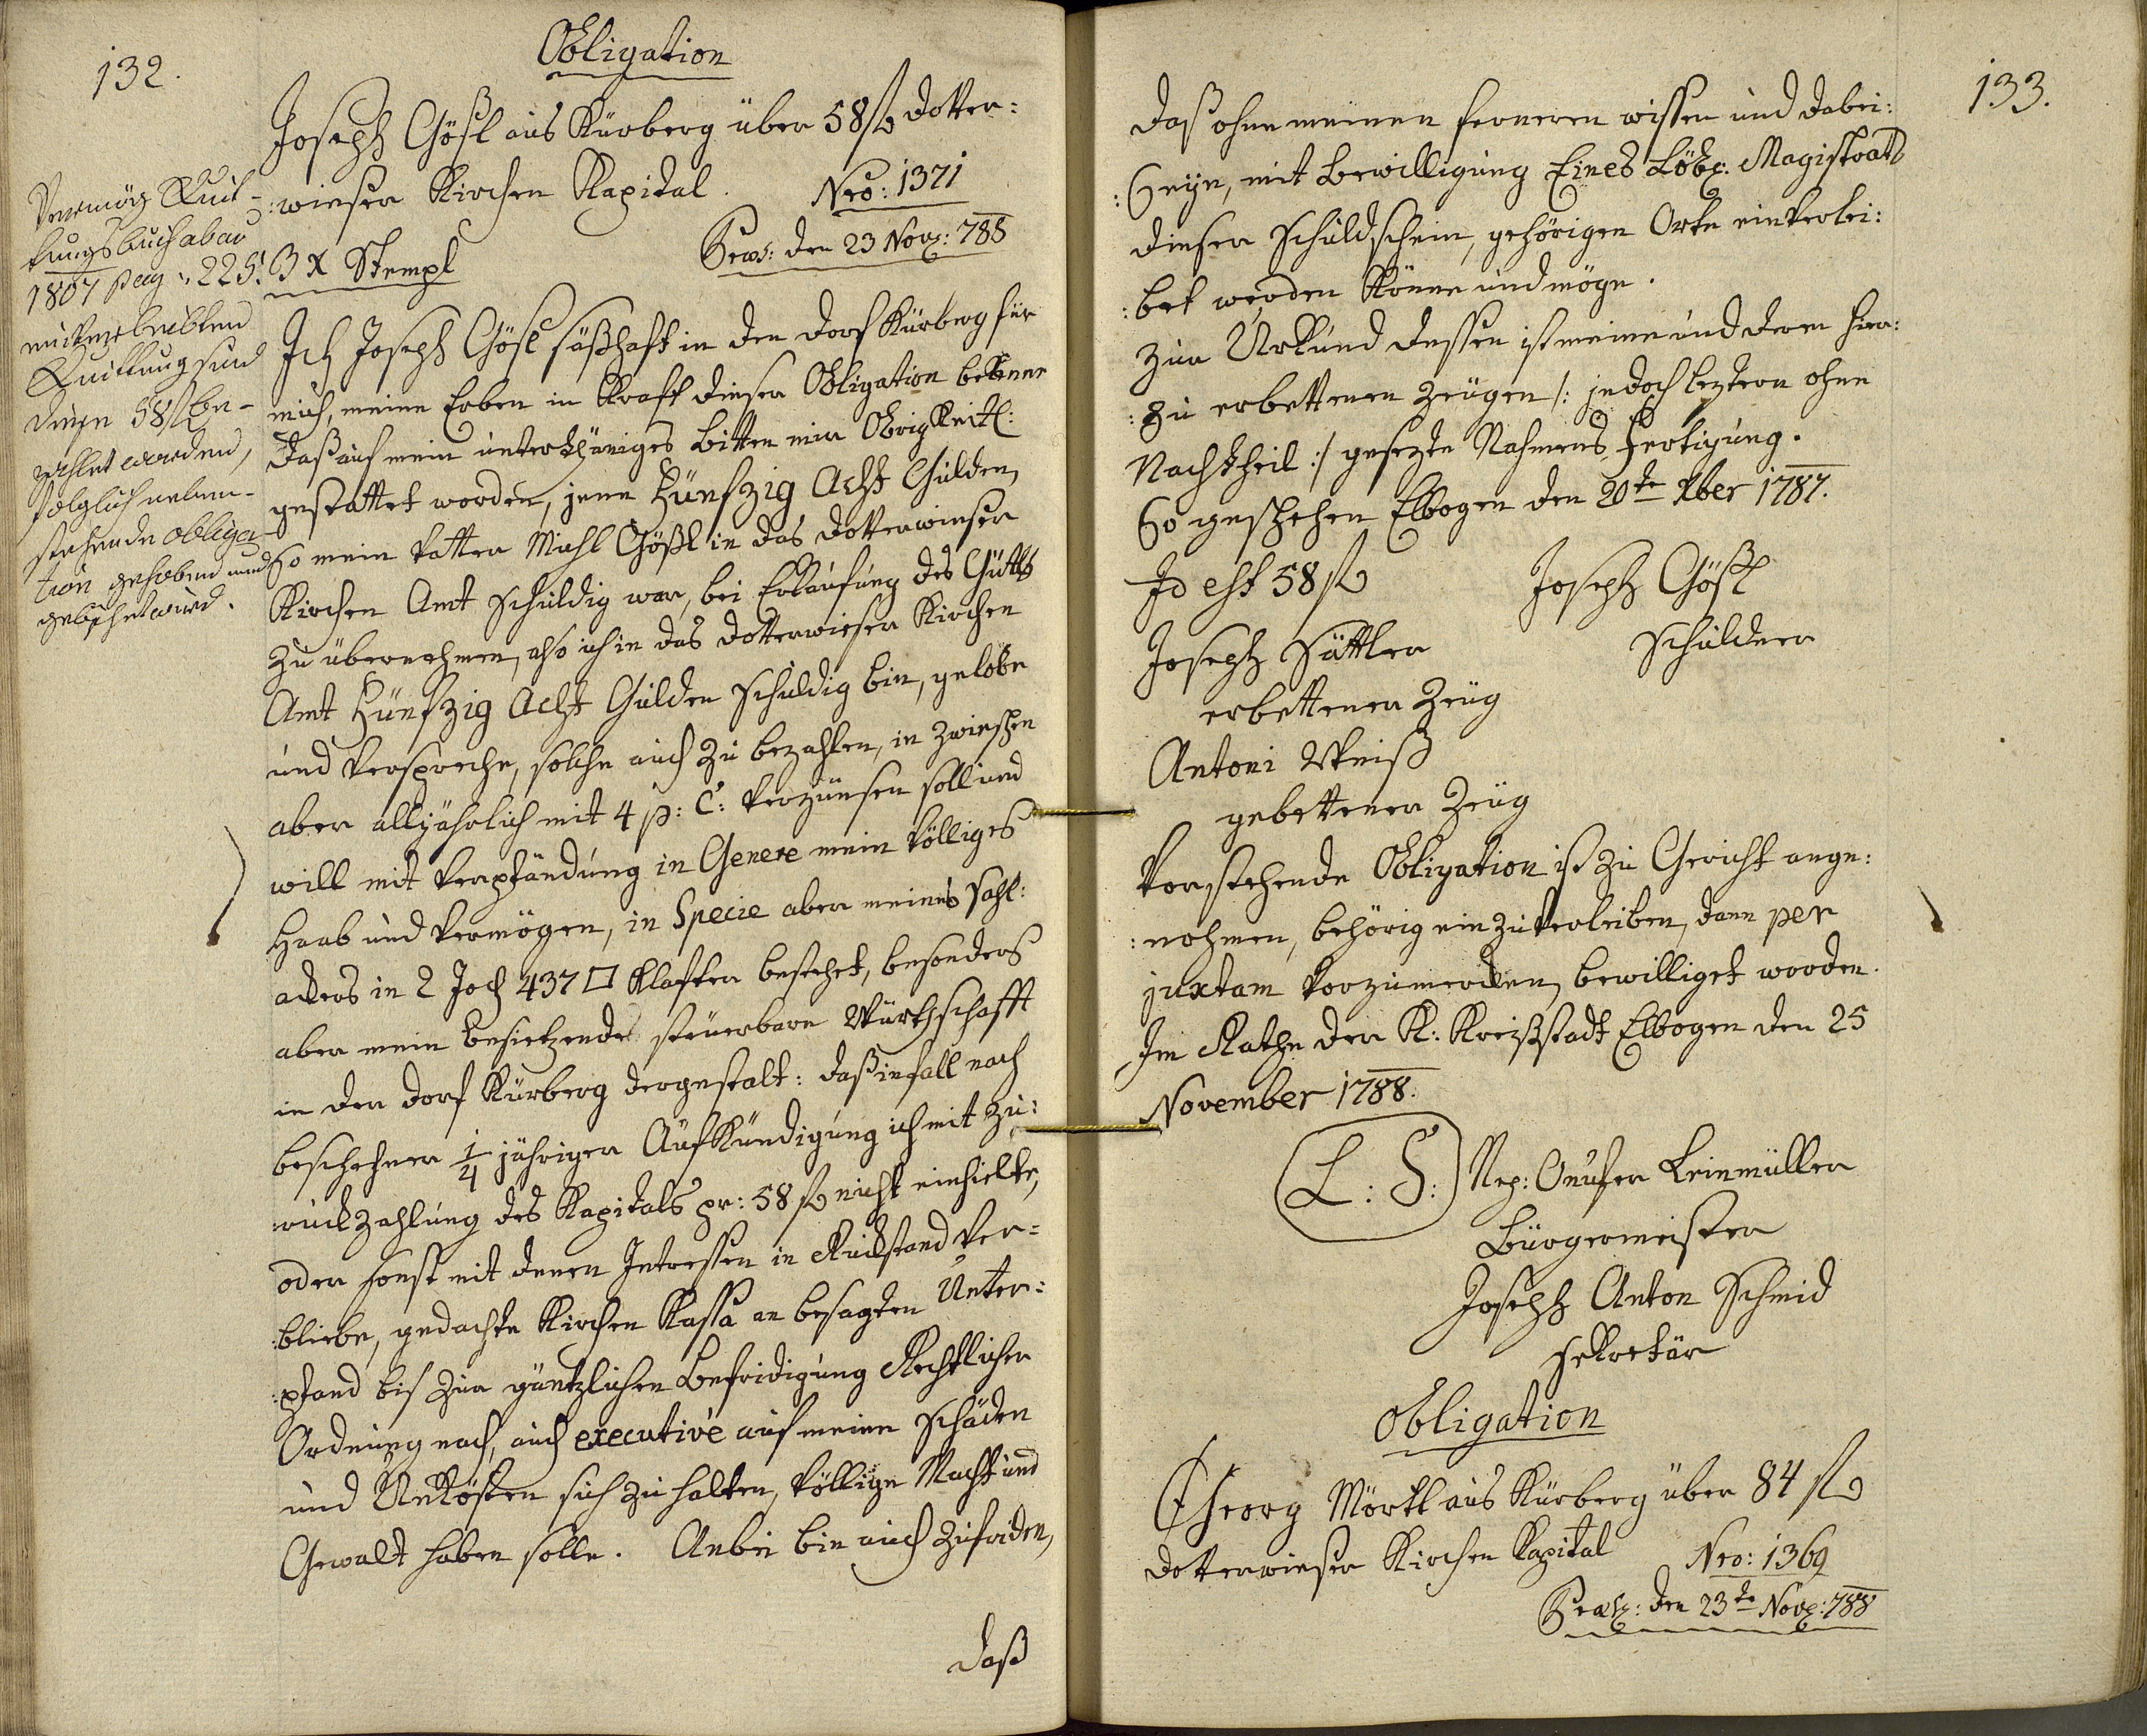 132.
Obligation
Joseph Gößl aus Kürberg über 58 fl Dotter=
:wieser Kirchen Kapital. Nro: 1371
Præs: den 23 Nov: 788
3 x Stempl
Vermög Quit-
tungsbuch ab anō
1807 pag: 225.
einverleibten
Quittung sind
diese 58 fl be-
zahlet worden,
folglich neben-
stehende Obliga-
tion gehoben und
gelöschet wird.
Ich Joseph Gösl säßhaft in den Dorf Kürberg für
mich, meine Erben in Kraft dieser Obligation bekenne
daß auf mein unterthäniges Bitten mir Obrigkeitl:
gestattet worden, jene Fünfzig Acht Gulden,
So mein Vatter Michl Gößl in das Dotterwieser
Kirchen Amt schuldig war, bei Erkaufung des Gutts
zu übernehmen, also ich in das Dotterwieser Kirchen
Amt Fünfzig Acht Gulden schuldig bin, gelobe
und verspreche, solche auch zu bezahlen, in zwischen
aber alljährlich mit 4 p: C: verzünsen soll und
will mit Verpfändung in Genere mein völliges
Haab und Vermögen, in Specie aber meines Fahl:
ackers in 2 Joch 437 □ Klafter bestehet, besonders
aber mein besietzende steuerbare Würthschafft
in den Dorf Kürberg dergestalt: daß infall nach
beschehener 1/4 jähriger Aufkündigung ich mit Zu:
ruckzahlung des Kapitals pr: 58 fl nicht einhielte,
oder sonst mit denen Intressen in Rückstand ver=
:bliebe, gedachte Kirchen Kassa an besagten Unter:
:pfand bis zur gäntzlichen Befridigung Rechtlicher
Ordnung nach, auch executive auf meine Schäden
und Unkösten sich zu halten, völlige Macht und
Gewalt haben solle. Anbei bin auch zufriden,
daß
133.
daß ohne meinen ferneren wissen und dabei:
:Seyn, mit Bewilligung Eines Löbl: Magistrats
dieser Schuldschein, gehörigen Orts einverlei:
:bet werden könne und möge.
Zur Urkund dessen ist meine und deren hier:
:zu erbettenen Zeugen /: jedoch leztern ohne
Nachtheil :/ gesezte Nahmens Fertigung.
So geschehen Elbogen den 20te Xber 1787.
Id est 58 fl Joseph Gößl
Schuldner
Joseph Sattler
erbettener Zeug
Antoni Weiß
gebettener Zeug
Vorstehende Obligation ist zu Gericht ange:
:nohmen, behörig einzuverleiben, dann per
juxtam vorzumerken, bewilliget worden.
Im Rathe der K: Kreißstadt Elbogen den 25
November 1788.
L: S: Nep: Onufer Leinmüller
Bürgermeister
Joseph Anton Schmid
Sekretär
Obligation
Georg Mörtl aus Kürberg über 84 fl
Dotterwieser Kirchen Kapital Nro: 1369
Præs: den 23te Nov: 788